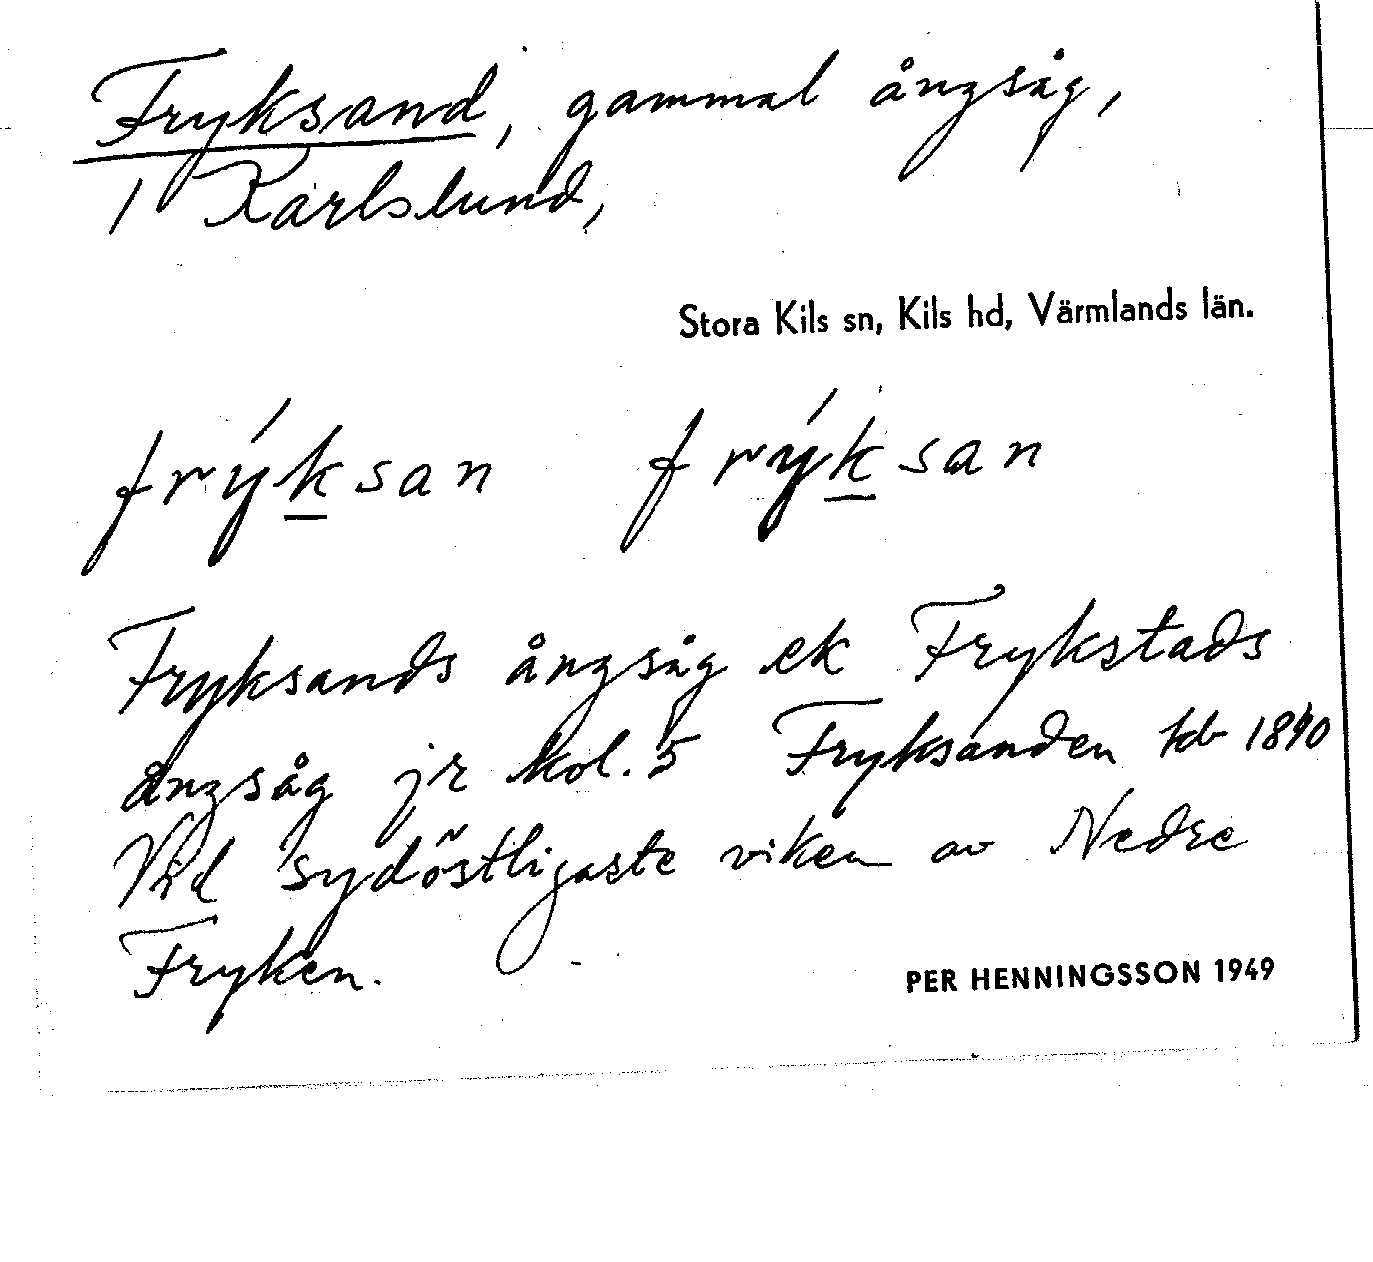 Fryksand, gammal ångsåg,
/ Karlslund,
Stora Kils sn, Kils hd, Värmlands län.
frýksan frýksan
Fryksands ångsåg ek Frykstads
ångsåg jr kol. 5 Fryksanden hb
Vid sydöstligaste viken av Nedre
Fryken.
PER HENNINGSSON 1949